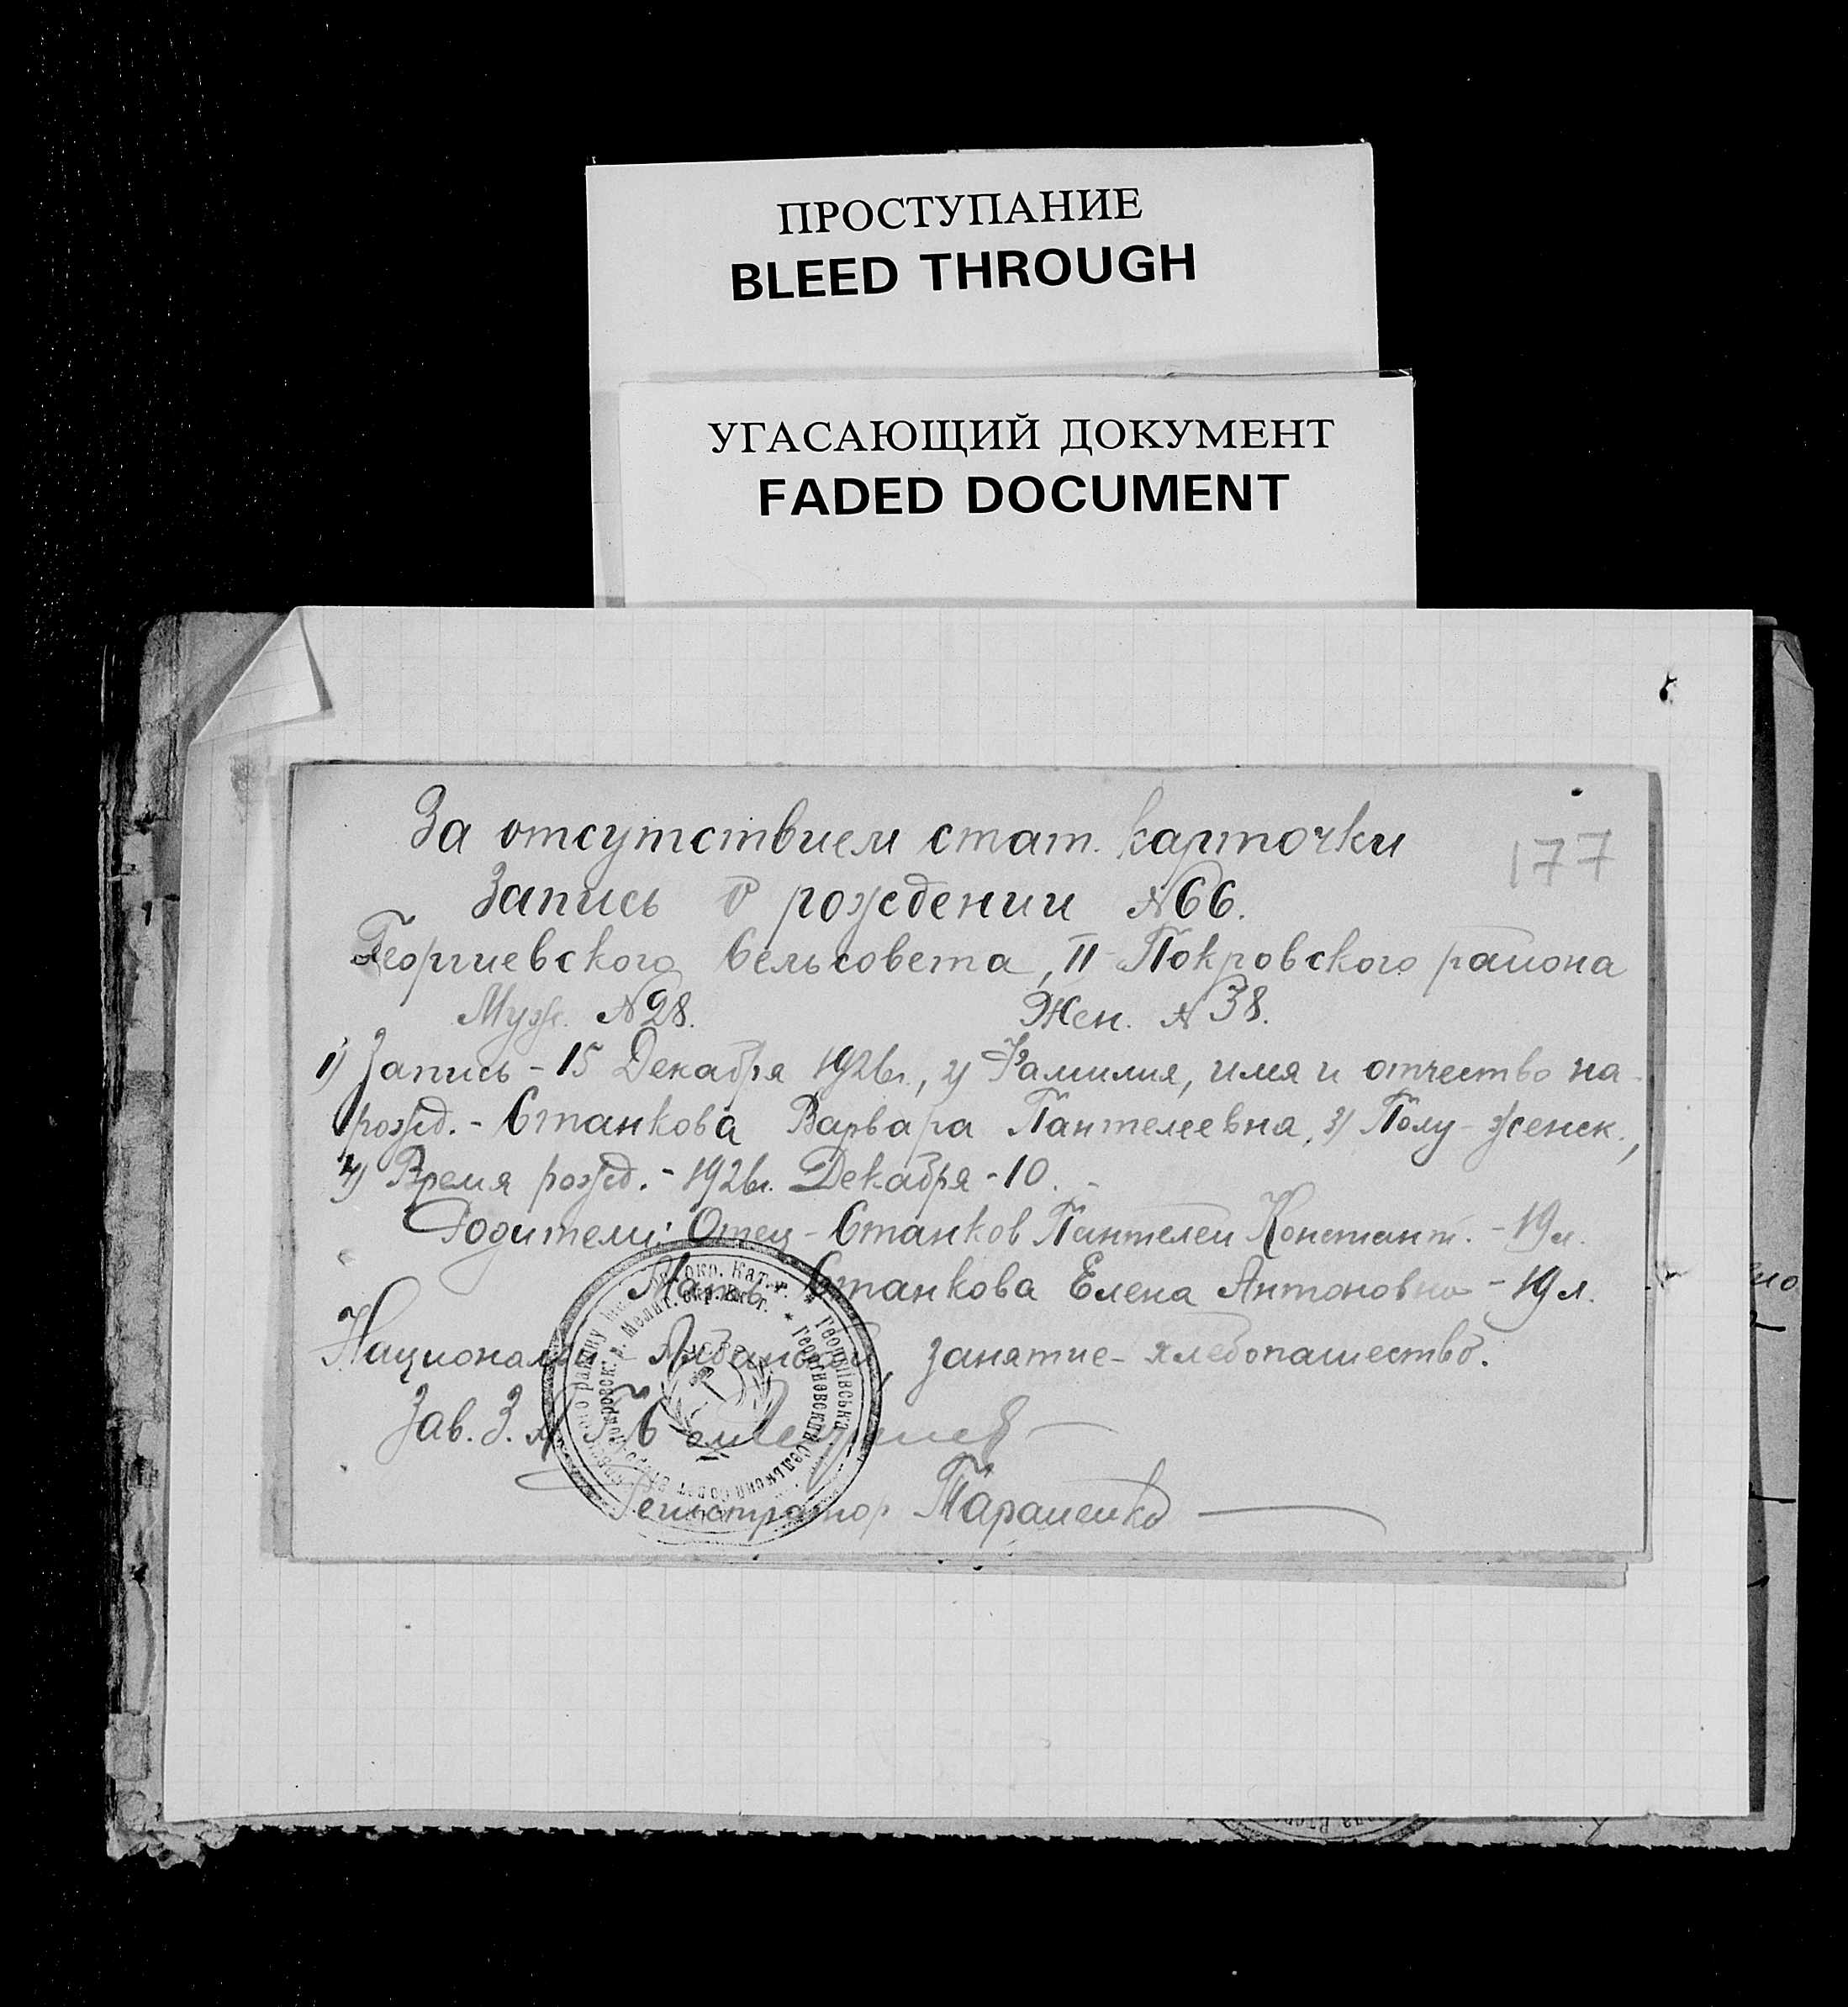 ПРОСТУПАНИЕ
BLEED THROUGH
УГАСАЮЩИЙ ДОКУМЕНТ
FADED DOCUMENT
177
За отсутствием стат. карточки
Запись о рождении №66.
Георгиевского Сельсовета, II Покровского района
Муж. №28. Жен. №38.
1) Запись - 15 Декабря 1926г., 2) Фамилия, имя и отчество на-
рожд. - Станкова Варвара Пантелеевна, 3) Полу - женск.,
4) Время рожд. - 1926г. Декабря - 10.
Родители: Отец - Станков Пантелеи Констант. - 19 л.
Мать Станкова Елена Антоновна - 19 л.
Национальн - Албанской, занятие - хлебопашество.
Зав. З.
Регистратор Тараненко